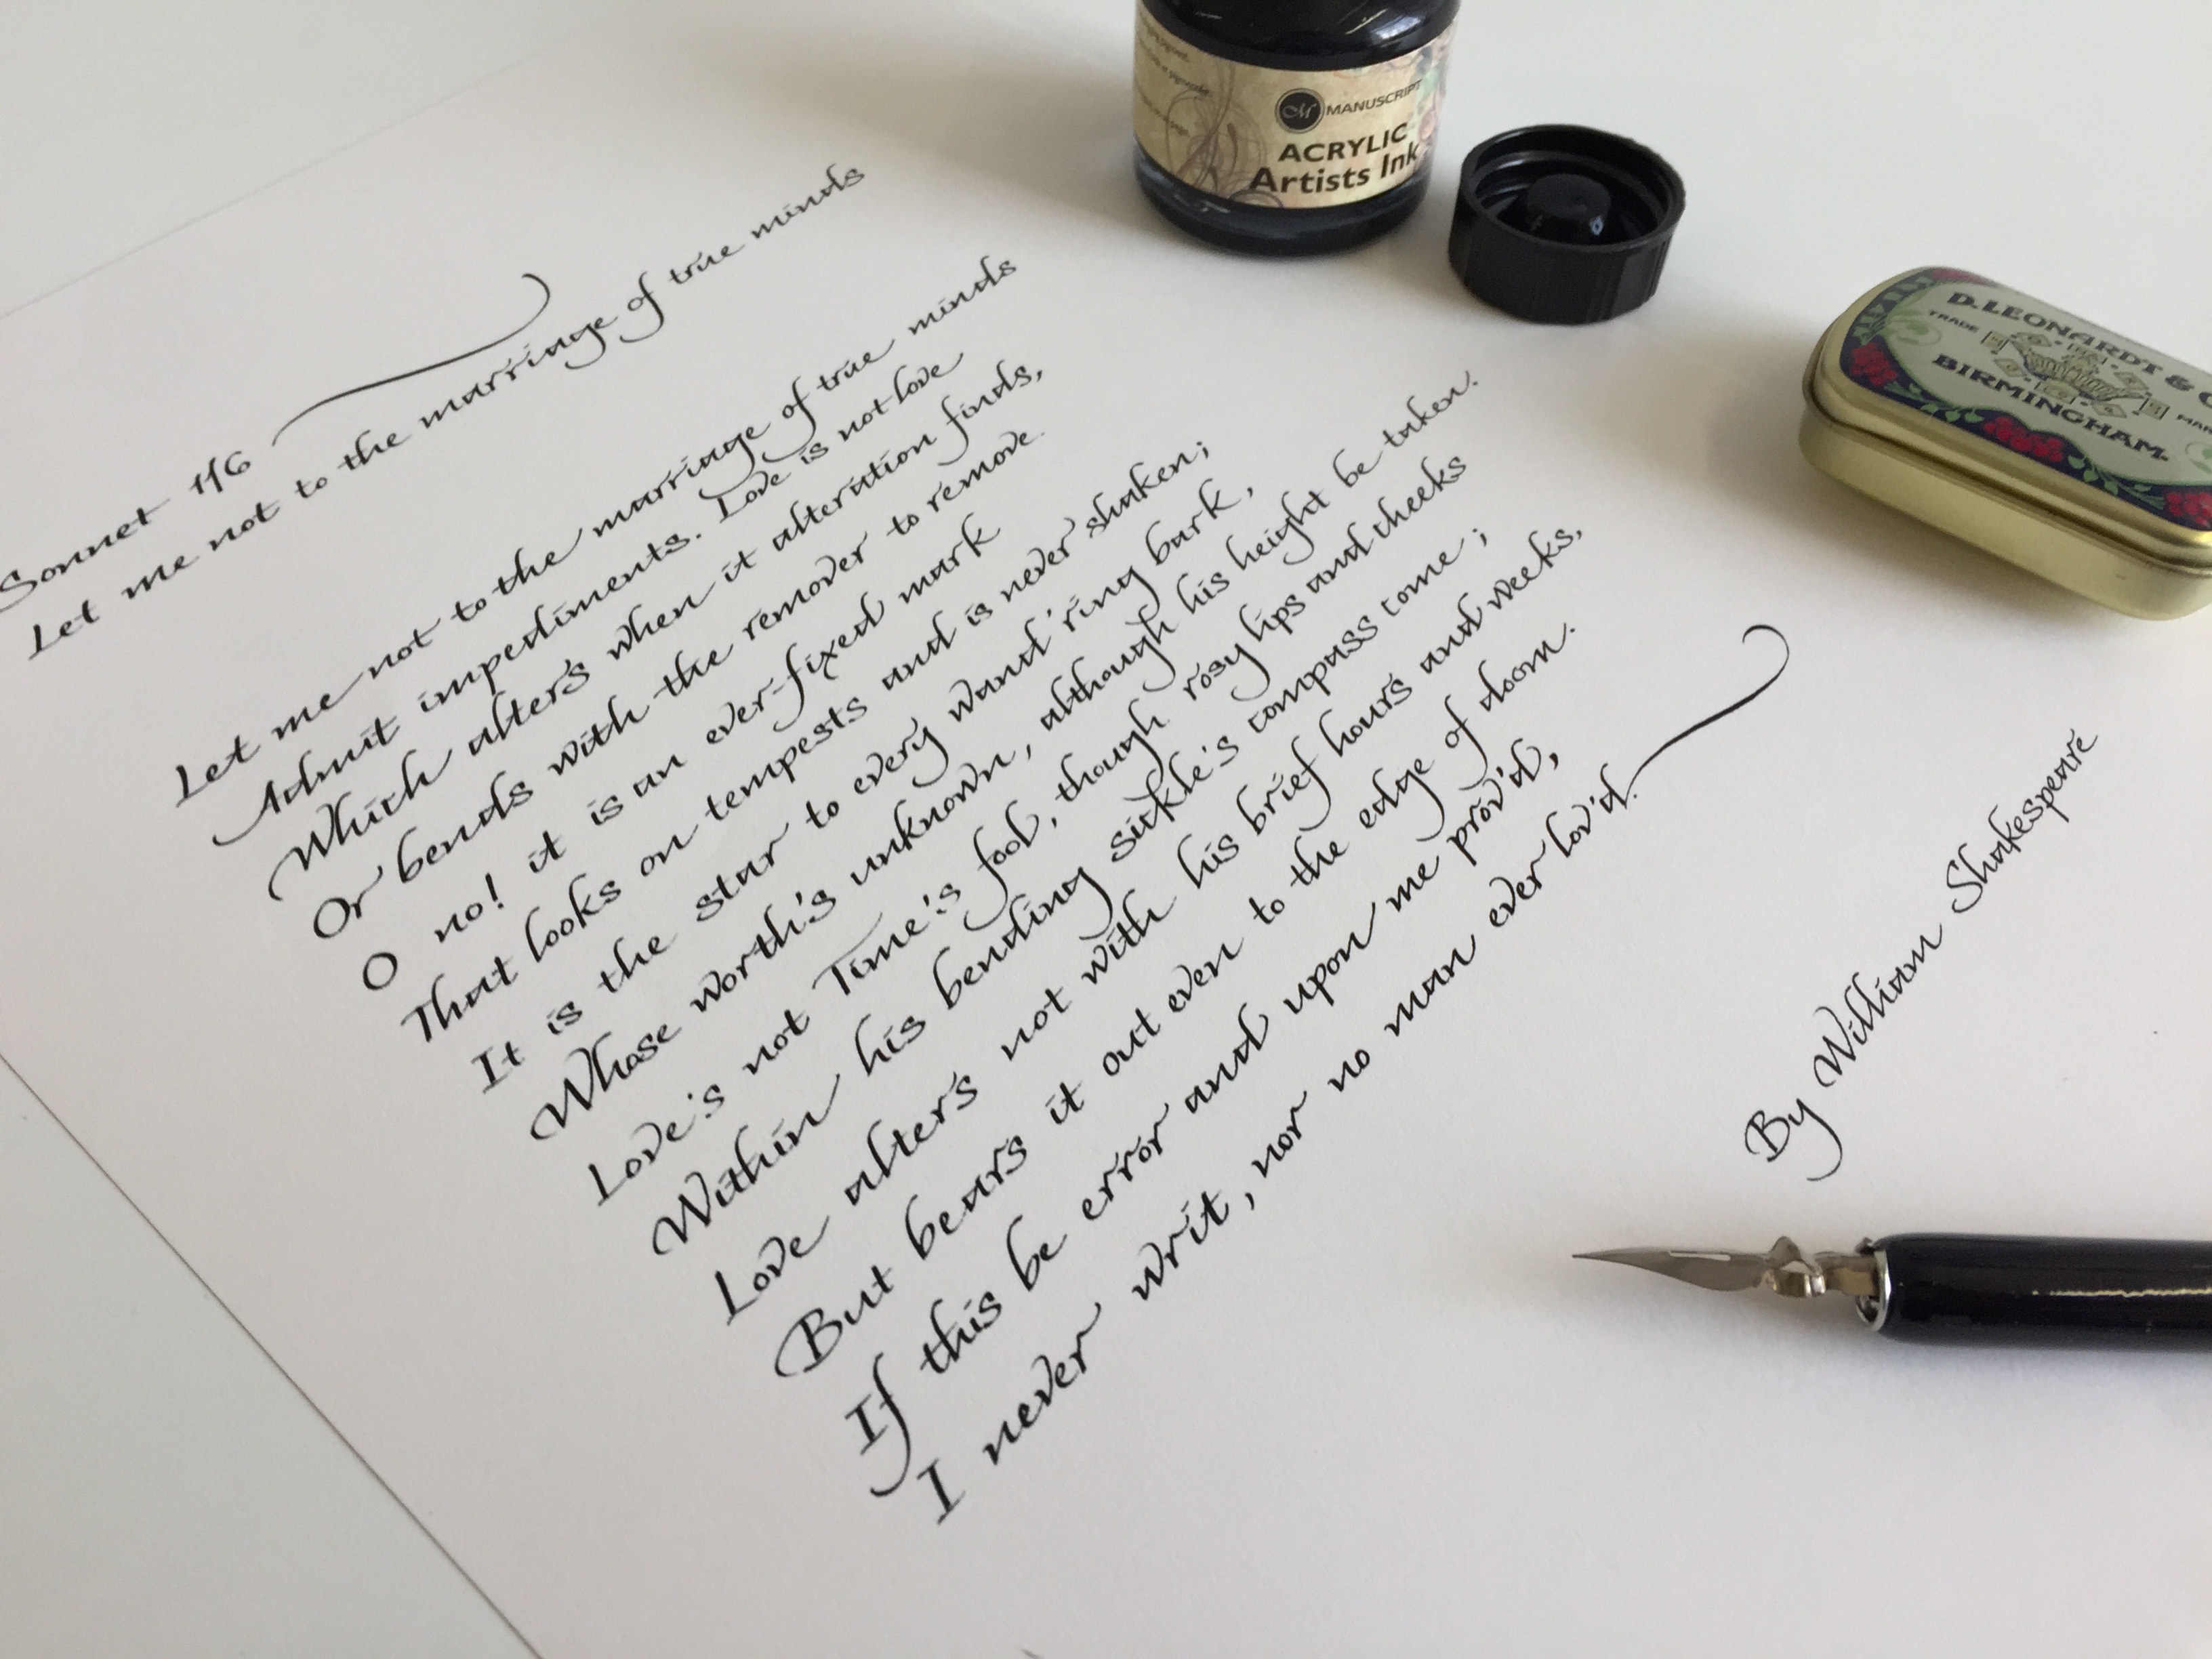 Sonnet 116
Let me not to the marriage of true minds
Let me not to the marriage of true minds
Admit impediments. Love is not love
Which alters when it alteration finds,
Or bends with the remover to remove.
O no! it is an ever-fixed mark
That looks on tempests and is never shaken;
It is the star to every wand'ring bark,
Whose worth's unknown, although his height be taken.
Love's not Time's fool, though rosy lips and cheeks
Within his bending sickle's compass come;
Love alters not with his brief hours and weeks,
But bears it out even to the edge of doom.
If this be error and upon me prov'd,
I never writ, nor no man ever lov'd.
By William Shakespeare
M MANUSCRIPT
ACRYLIC
Artists Ink
D. LEONARDT & 
TRADE
BIRMINGHAM.